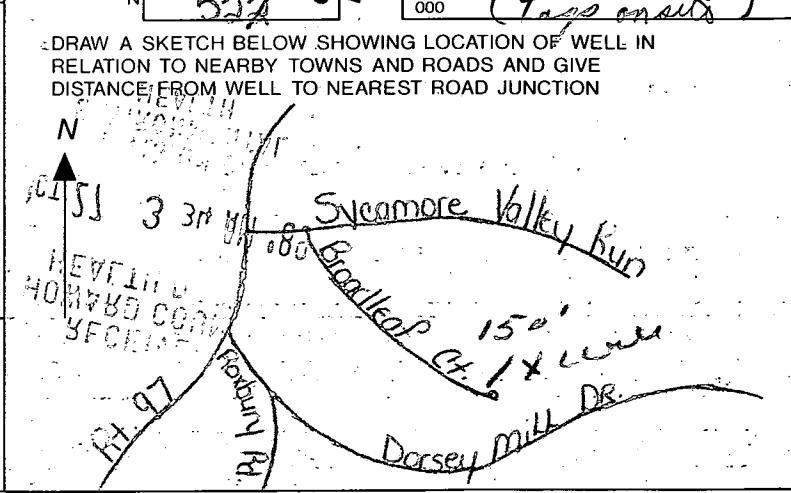 522
000
(Tags on site)
DRAW A SKETCH BELOW SHOWING LOCATION OF WELL IN
RELATION TO NEARBY TOWNS AND ROADS AND GIVE
DISTANCE FROM WELL TO NEAREST ROAD JUNCTION
HEALTH
N
Sycamore Valley Run
HEALTH
HOWARD COUN
RECEIVE
Broadleaf Ct.
150'
1 X well
Rt. 97
Roxbury Rd.
Dorsey Mill DR.